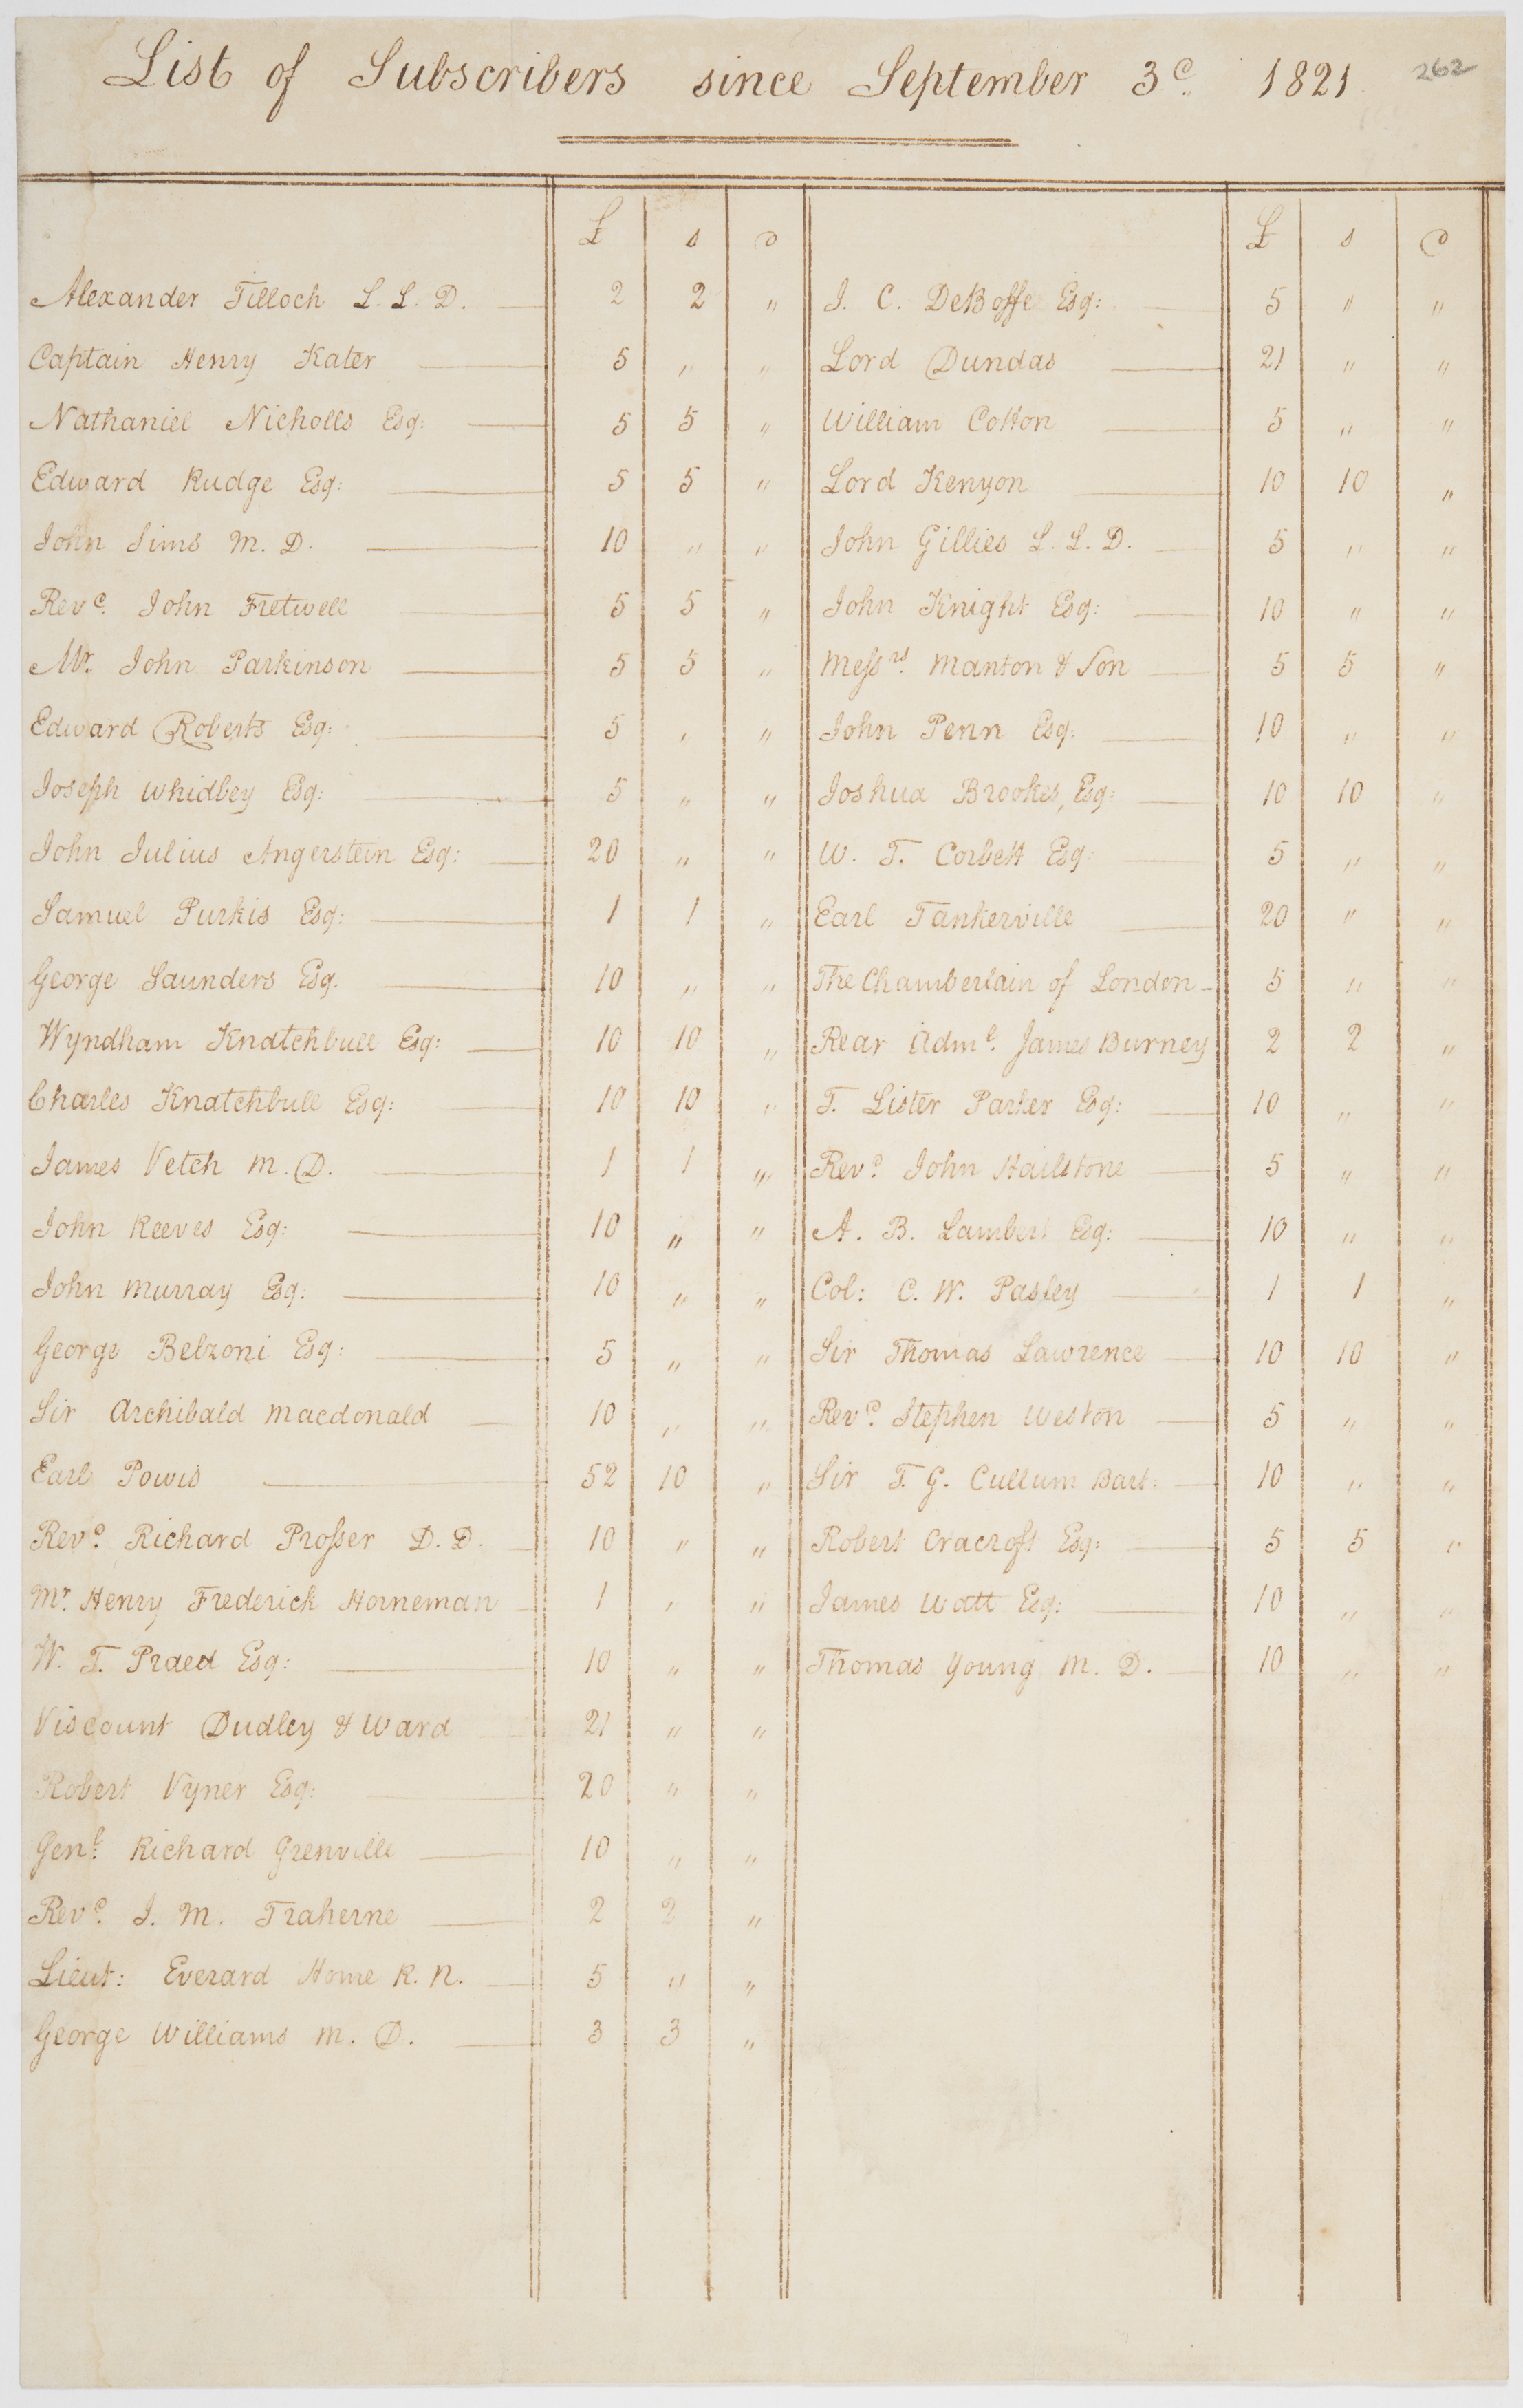 List of Subscribers since September 3d. 1821 262
£ s d
Alexander Tilloch L. L. D. 2 2 "
Captain Henry Kater 5 " "
Nathaniel Nicholls Esq: 5 5 "
Edward Rudge Esq: 5 5 "
John Sims M. D. 10 " "
Revd. John Fretwell 5 5 "
Mr. John Parkinson 5 5 "
Edward Roberts Esq: 5 " "
Joseph Whidbey Esq: 5 " "
John Julius Angerstein Esq: 20 " "
Samuel Purkis Esq: 1 1 "
George Saunders Esq. 10 " "
Wyndham Knatchbull Esq: 10 10 "
Charles Knatchbull Esq: 10 10 "
James Vetch M. D. 1 1 "
John Reeves Esq: 10 " "
John Murray Esq: 10 " "
George Belzoni Esq: 5 " "
Sir Archibald Macdonald 10 " "
Earl Powis 52 10 "
Revd. Richard Prosser D. D. 10 " "
Mr. Henry Frederick Horneman 1 " "
W. T. Praed Esq: 10 " "
Viscount Dudley & Ward 21 " "
Robert Vyner Esq: 20 " "
Genl. Richard Grenville 10 " "
Revd. J. M. Traherne 2 2 "
Lieut: Everard Home R. N. 5 " "
George Williams M. D. 3 3 "
£ s d
J. C. DeBoffe Esq: 5 " "
Lord Dundas 21 " "
William Cotton 5 " "
Lord Kenyon 10 10 "
John Gillies L. L. D. 5 " "
John Knight Esq: 10 " "
Messrs. Manton & Son 5 5 "
John Penn Esq: 10 " "
Joshua Brookes, Esq: 10 10 "
W. T. Corbett Esq: 5 " "
Earl Tankerville 20 " "
The Chamberlain of London 5 " "
Rear Adml. James Burney 2 2 "
T. Lister Parker Esq: 10 " "
Revd. John Hailstone 5 " "
A. B. Lambert Esq: 10 " "
Col: C. W. Pasley 1 1 "
Sir Thomas Lawrence 10 10 "
Revd. Stephen Weston 5 " "
Sir T. G. Cullum Bart: 10 " "
Robert Cracroft Esq: 5 5 "
James Watt Esq: 10 " "
Thomas Young M. D. 10 " "